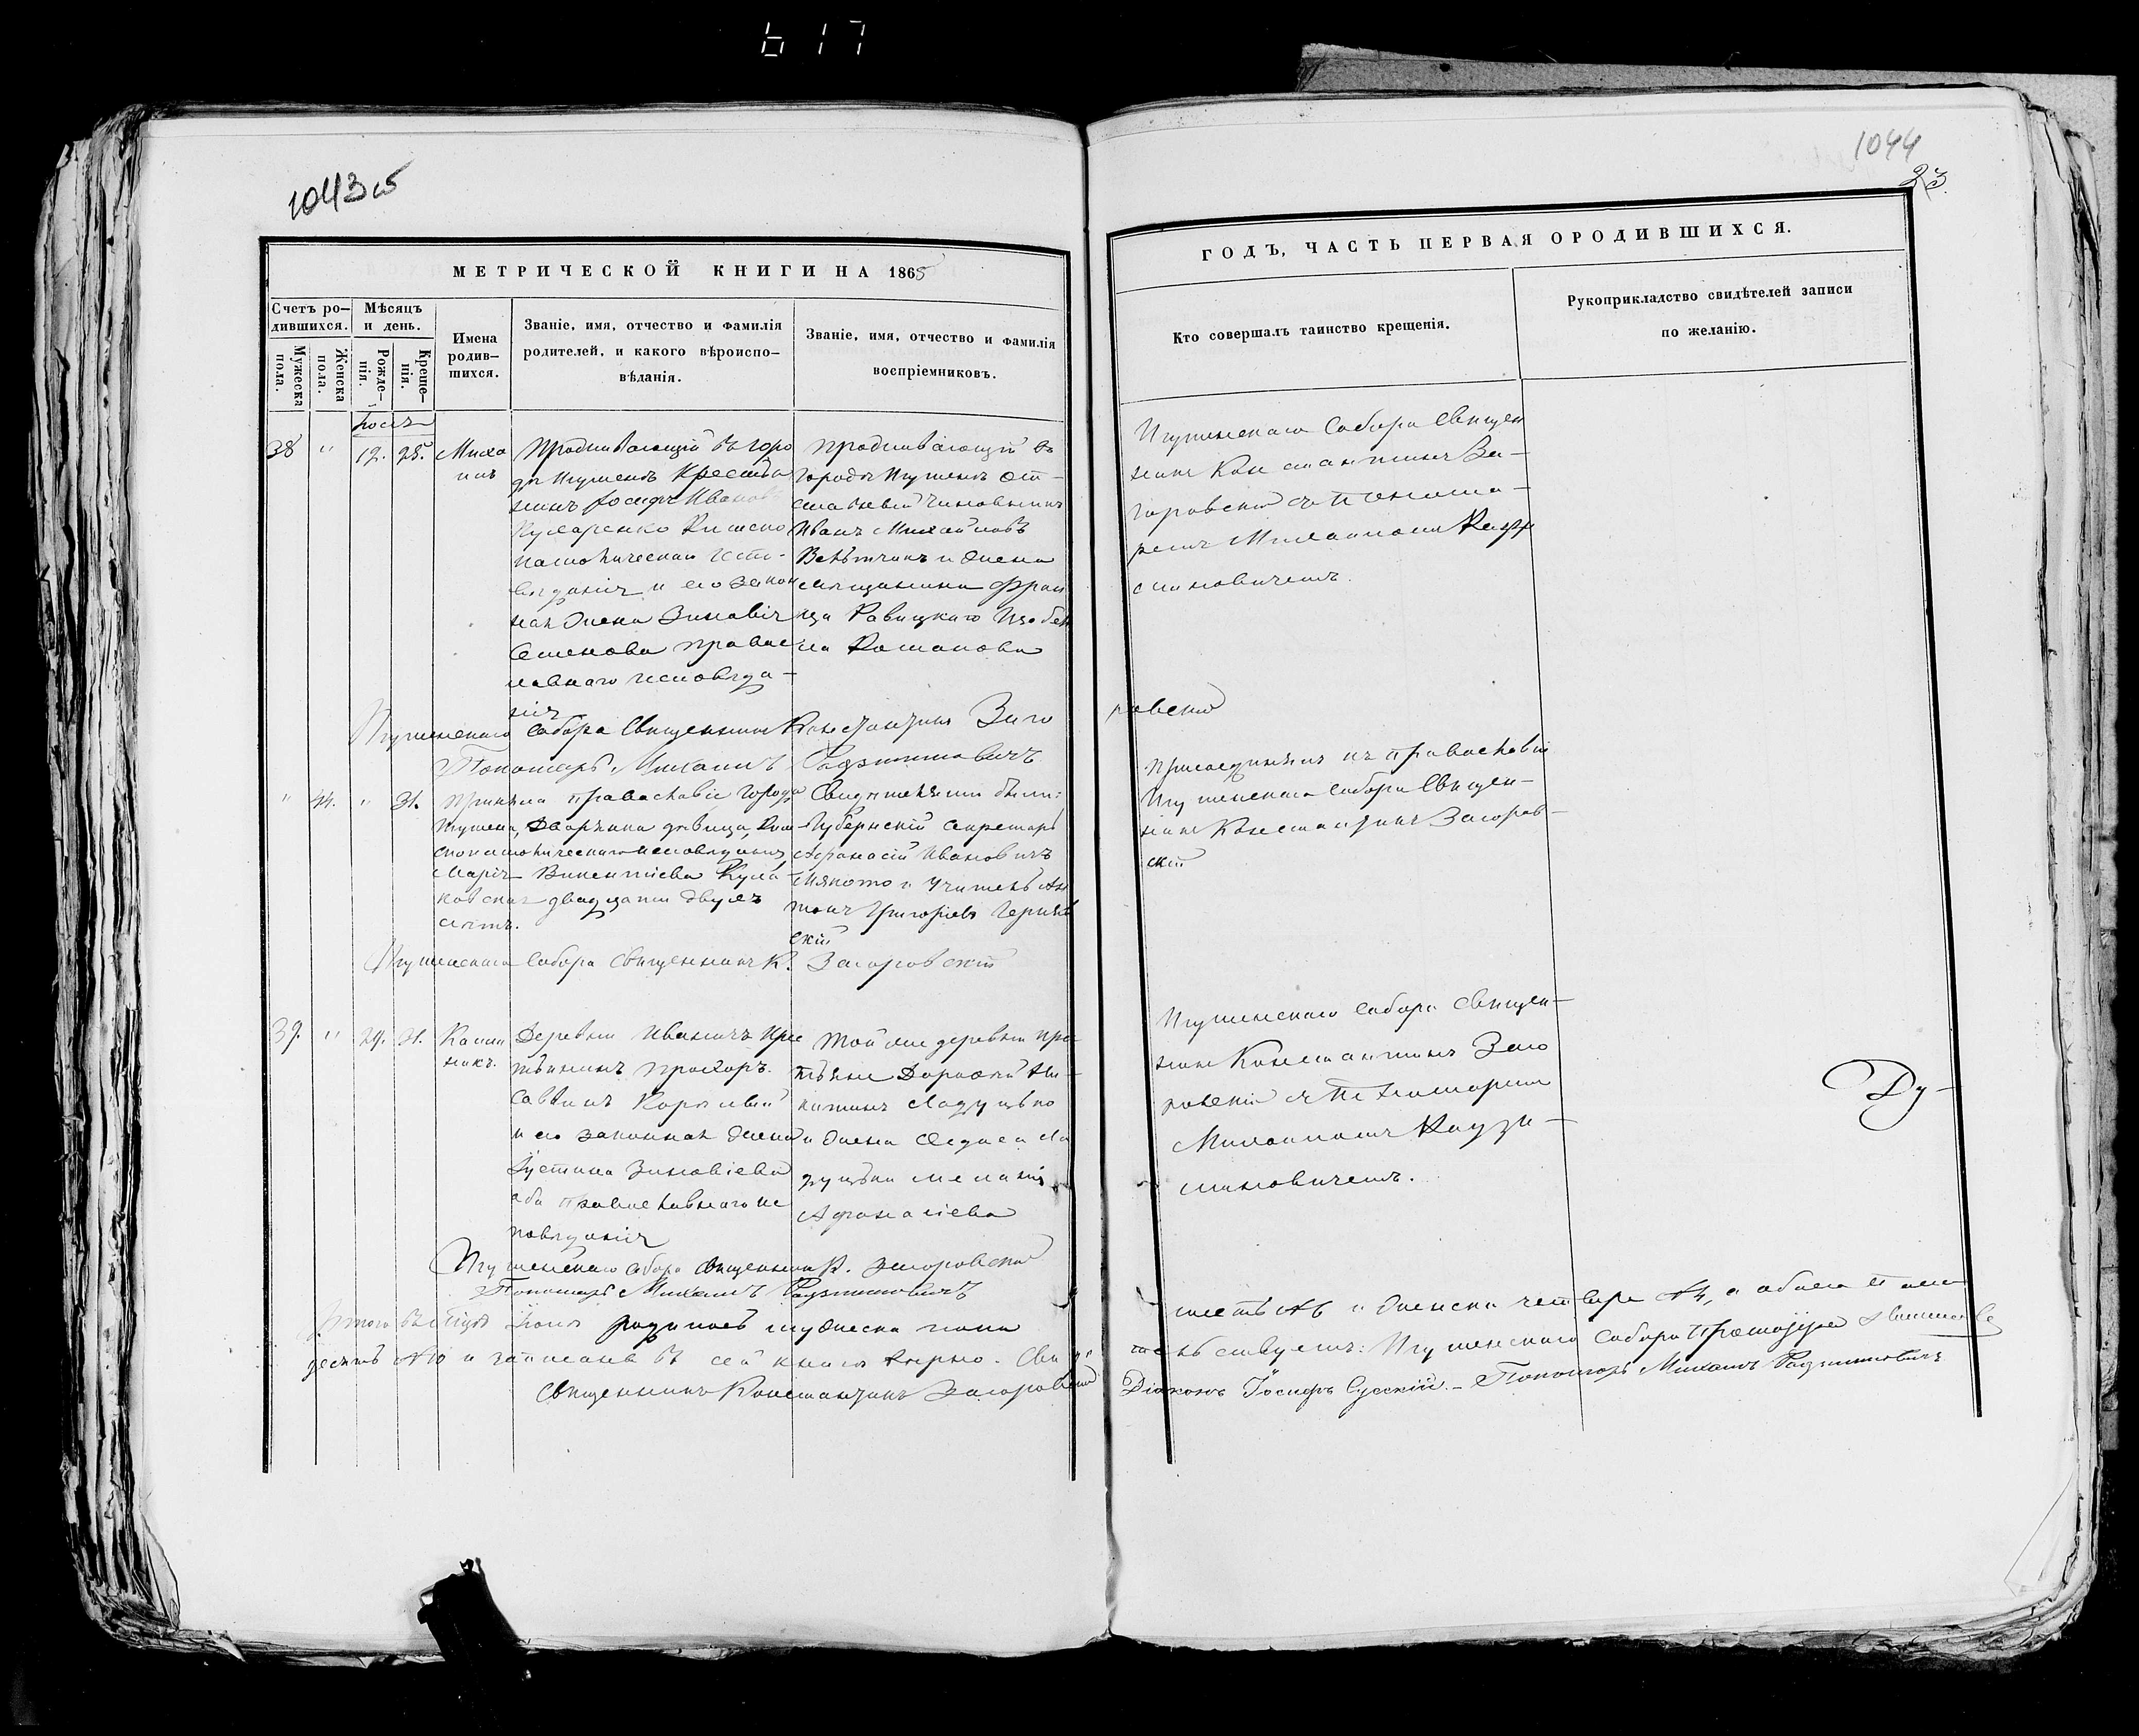 617
1043 об
1044
23.
МЕТРИЧЕСКОЙ КНИГИ НА 1865
ГОДЪ, ЧАСТЬ ПЕРВАЯ О РОДИВШИХСЯ.
Счетъ ро-
дившихся.
Мужеска
пола.
Женска
пола.
Мѣсяцъ
и день.
Рожде-
нія.
Креще-
нія.
Имена
родив-
шихся.
Званіе, имя, отчество и фамилія
родителей, и какого вѣроиспо-
вѣданія.
Званіе, имя, отчество и фамилія
воспріемниковъ.
Кто совершалъ таинство крещенія.
Рукоприкладство свидѣтелей записи
по желанію.
38 " 12. 25.
Миха
илъ
Проживающій въ горо
дѣ Игуменѣ Крестья
нинъ Іосифъ Иванов
Кухаренко Римско
католическаго испо-
вѣданія и его закон
ная жена Зиновія
Семенова правос
лавнаго исповѣда-
нія
Проживающій въ
городѣ Игуменѣ от-
ставный Чиновникъ
Иванъ Михайловъ
и жена
мѣщанина Фран
ца Равицкаго Изабел
ла Романова
Игуменскаго Собора Священ
никъ Константинъ За-
горовскій съ Понома-
ремъ Михаиломъ
Игуменскаго Собора Священникъ Константинъ Заго
ровскій
Пономарь Михаилъ
" 44. " 31.
Приняла православіе города
Игумена, Дворянка дѣвица, Рим-
скокатолическаго исповѣданія
Марія Викентіева
двадцати двухъ
лѣтъ.
Свидѣтелями были:
Губернскій Секретарь
Афанасій Ивановичъ
и Учитель Ан
тонъ Григорьевъ
скій
Присоединилъ къ православію
Игуменскаго Собора Священ-
никъ Константинъ Загоров-
скій
Игуменскаго Собора Священникъ К. Загоровскій
39. " 29. 31.
Калли
никъ.
Деревни Иваничъ Крес
тьянинъ Прохоръ
Саввинъ
и его законная жена
Іустина Зиновіева
оба православнаго ис
повѣданія
Той же деревни кре
стьяне Дорофей Ни-
китинъ Ладуцько
и жена Ла
дуцька Меланія
Афанасіева
Игуменскаго Собора Священ-
никъ Константинъ Заго
ровскій съ Пономаремъ
Михаиломъ
Ду-
Игуменскаго Собора Священникъ К. Загоровскій
Пономарь Михаилъ
Итого въ мѣсяцѣ родилось мужеска пола
шесть №6 и женска четыре №4, а обоего пола
десять №10 и записаны въ сей книгѣ вѣрно. Свидѣ
тельствуетъ: Игуменскаго Собора
Священникъ Константинъ Загоровскій
Діаконъ Іосифъ Сусскій. - Пономарь Михаилъ